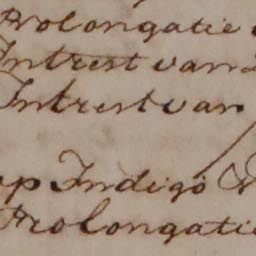 Prolongatie
Intrest van
Intrest van
op Indigo &
Prolongatie